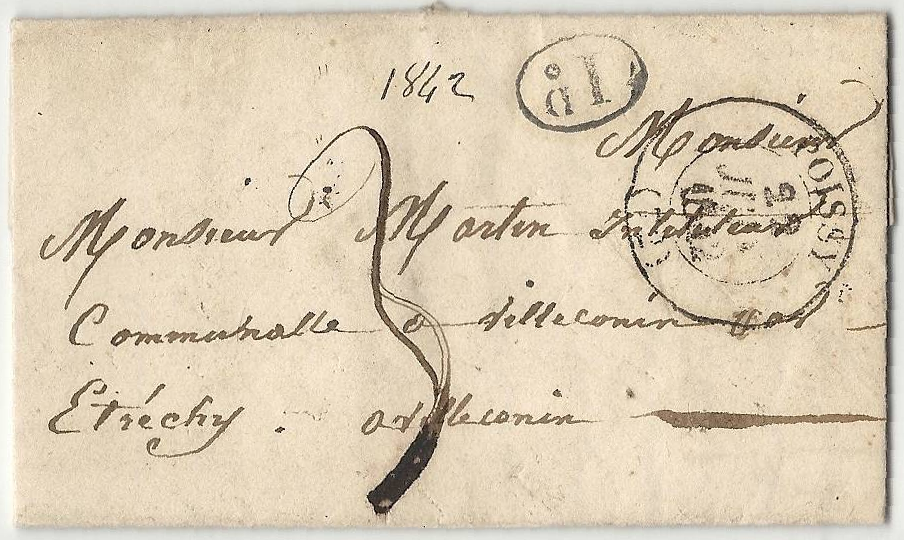 1842
1D
Monsieur
Monsieur Martin Instituteur
Communalle a villeconin par
Etréchy . a villeconin
3